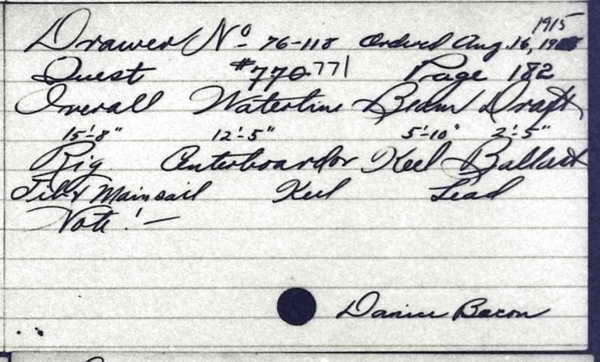 1915
Drawer No 76-118 Ordered Aug. 16, 19
Quest #770-771 Page 182
Overall Waterline Beam Draft
15'-8" 12'-5" 5'-10" 2'-5"
Rig Centerboard or Keel Ballast
Jib & Mainsail Keel Lead
Note!—
Bacon